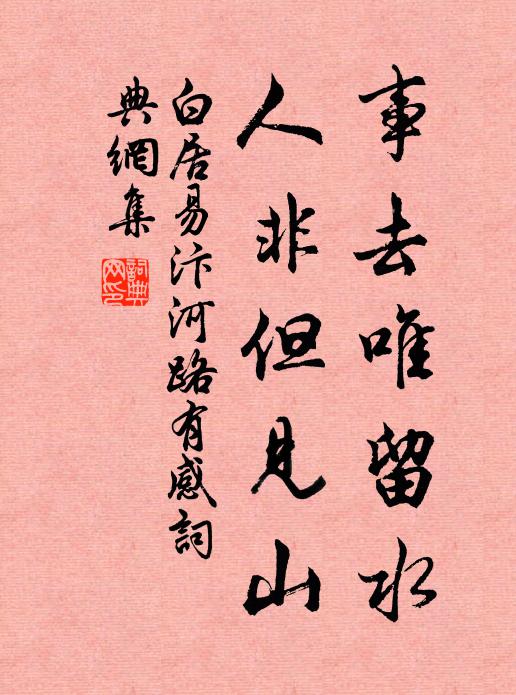 事去唯留水
人非但見山
白居易汴河路有感詞
典網集
詞典
网印